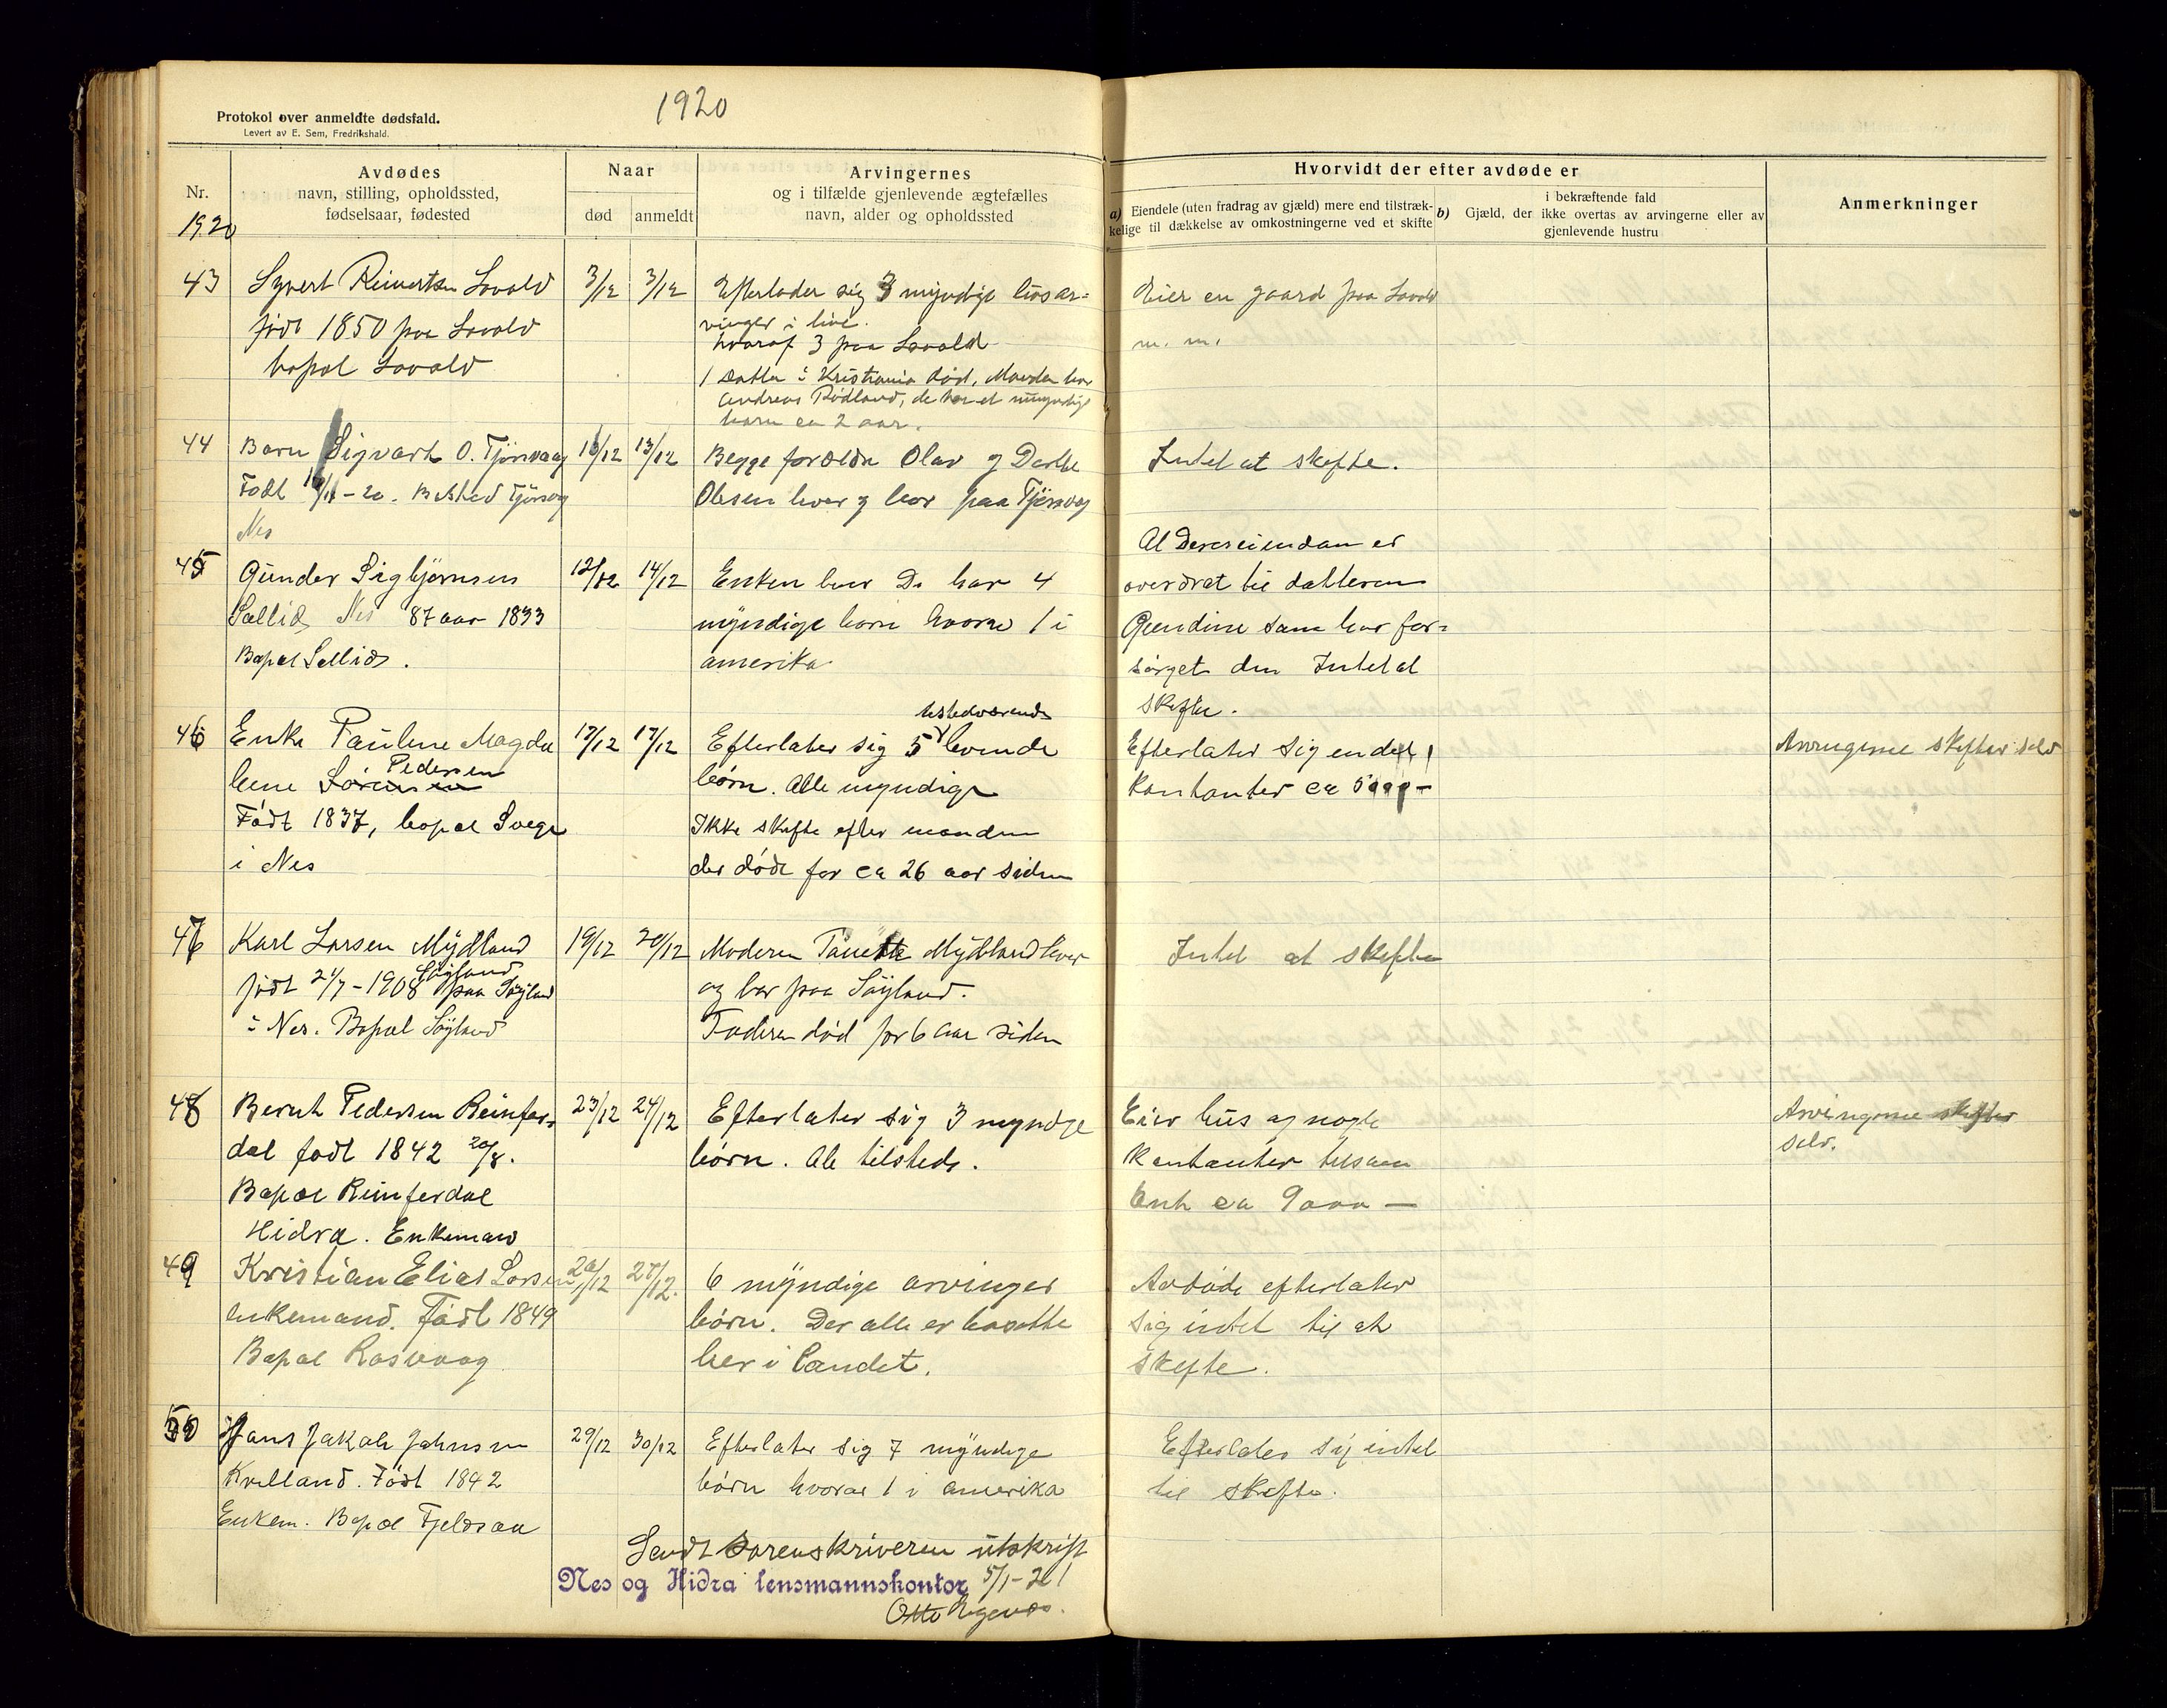 1920
Protokol over anmeldte dødsfald.
Levert av E. Sem, Fredrikshald.
Nr.
1920
Avdødes
navn, stilling, opholdssted,
fødselsaar, fødested
Naar
død
anmeldt
Arvingernes
og i tilfælde gjenlevende ægtefælles
navn, alder og opholdssted
Hvorvidt der efter avdøde er
a) Eiendele (uten fradrag av gjæld) mere end tilstræk-
kelige til dækkelse av omkostningerne ved et skifte
b) Gjæld, der
i bekræftende fald
ikke overtas av arvingerne eller av
gjenlevende hustru
Anmerkninger
43
Syvert Reinertsen Lovald
født 1850 paa Lovald
bopæl Lovald
3/12
3/12
Efterlader sig 3 myndige livsar-
vinger i live.
hvoraf 3 paa Lovald
1 datter i Kristiania død, Manden har
Andreas Rødland, de har et umyndige
barn ca 2 aar.
Eier en gaard paa Lovald
m. m.
44
Barn Sigvart O. Tjørsvaag
Født /11-20. Bosted Tjørsvag
Nes
13/12
13/12
Begge forældre Olav og Dorthe
Olesen lever og bor paa Tjørsvag
Intet at skifte.
45
Gunder Sigbjørnsen
Sellid Nes 87 aar 1833
Bopæl Sellid.
12/12
14/12
Enken lever De har 4
myndige barn hvorav 1 i
amerika
Al Deres eiendom er
overdrat til datteren
Gundine som har for-
sørget dem Intet at
skifte.
46
Enke Pauline Magda
lene Sørensen Pedersen
Født 1837, bopæl Svege
i Nes
17/12
17/12
tilstedværende
Efterlater sig 5 levende
børn. Alle myndige
Ikke skifte efter manden
der døde for ca 26 aar siden
Efterlater sig endel
kontanter ca 5000-
Arvingerne skifter selv
47
Karl Larsen Mydland
Søyland
født 21/7-1908 paa Søyland
i Nes. Bopæl Søyland
19/12
20/12
Moderen Tanette Mydland lever
og bor paa Søyland.
Faderen død for 6 aar siden
Intet at skifte
48
Bernt Pedersen Reinfer-
dal født 1842 20/8.
Bopæl Reinferdal
Hidra. Enkemand
23/12
24/12
Efterlater sig 3 myndige
børn. Alle tilsteds.
Eier hus og nogle
kontanter tilsam
ent ca 9000 —
Arvingerne skifter
selv.
49
Kristian Elias Larsen
enkemand. Født 1849
Bopæl Rasvaag
26/12
27/12.
6 myndige arvinger
børn. Der alle er bosatte
her i landet.
Avdøde efterlater
sig intet til at
skifte.
50
Hans Jakob Johnsen
Kvelland. Født 1842
Enkem. Bopæl Fjeldsaa
29/12
30/12
Efterlater sig 7 myndige
børn hvorav 1 i amerika
Efterlater sig intet
til skifte.
Sendt sorenskriveren utskrift
Nes og Hidra lensmannskontor 5/1-21
Otto